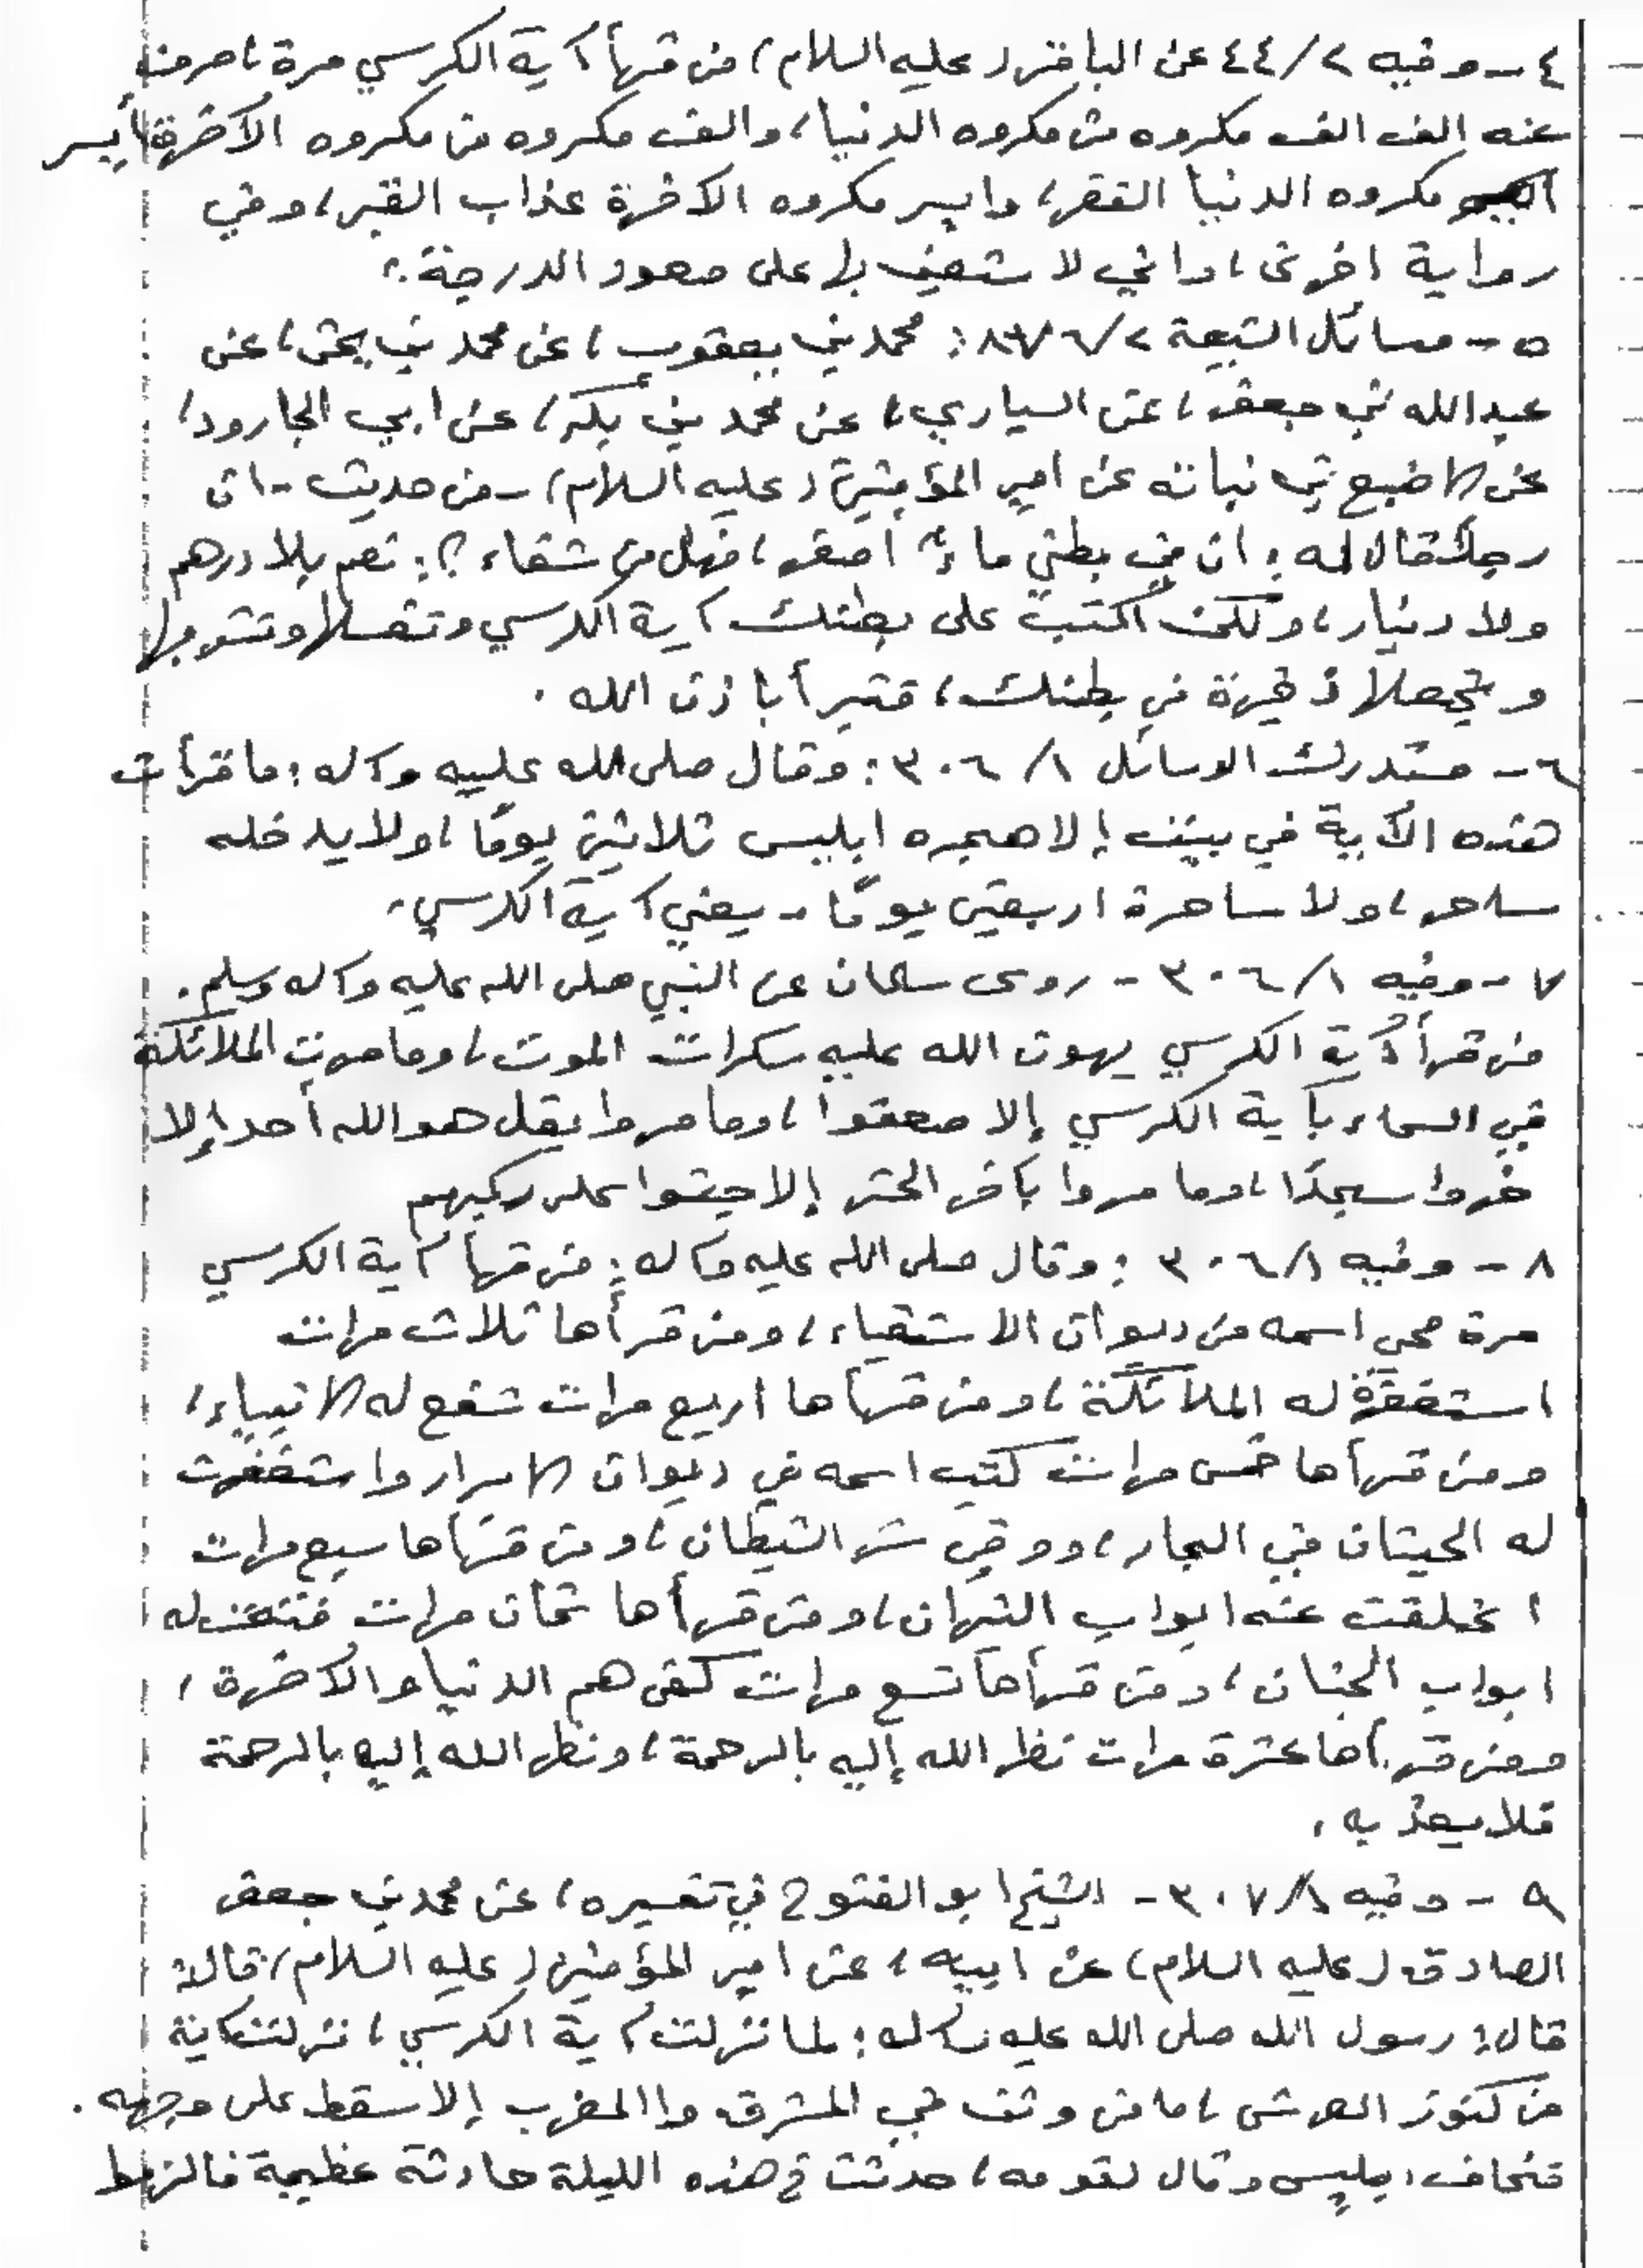 ٤ - وفيه ٢/٤٤ عن الباقر (عليه السلام) من قرأ آية الكرسي مرة، صرف
عنه الف الف مكروه من مكروه الدنيا، والف مكروه من مكروه الآخرة أيسر
مكروه الدنيا الفقر، وايسر مكروه الآخرة عذاب القبر، وفي
رواية اخرى، واني لا ستعين بها على صعود الدرجة.
٥ - وسائل الشيعة : محمد بن يعقوب، عن محمد بن يحيى، عن
عبدالله بن جعفر، عن السياري، عن محمد بن بكر، عن ابي الجارود،
عن الاصبغ بن نباته عن امير المؤمنين (عليه السلام) - من حديث - ان
رجلاً قال له: ان في بطني ماءً اصفر، فهل من شفاء؟: نعم بلا درهم
ولا دينار، ولكن اكتب على بطنك آية الكرسي وتغسلها وتشربها
وتجعلها ذخيرة في بطنك، فتبرأ باذن الله.
٦ - مستدرك الوسائل ١/ ٣٠٦: وقال صلى الله عليه وآله: ما قرأت
هذه الآية في بيت إلا هجره ابليس ثلاثين يومًا، ولا يدخله
ساحر، ولا ساحرة اربعين يومًا - يعني آية الكرسي.
٧ - وفيه ١/ ٣٠٦ - روى سلمان عن النبي صلى الله عليه وآله وسلم.
من قرأ آية الكرسي يهون الله عليه سكرات الموت، وما مرت الملائكة
في السماء بآية الكرسي إلا صعقوا، وما مروا بقل هو الله أحد إلا
خروا سجدًا، وما مروا بآخر الحشر إلا جثوا على ركبهم
٨ - وفيه ٣٠٦/١ : وقال صلى الله عليه وآله: من قرأ آية الكرسي
مرة محي اسمه من ديوان الاشقياء، ومن قرأها ثلاث مرات
استغفرة له الملائكة، ومن قرأها اربع مرات شفع له الانبياء،
ومن قرأها خمس مرات كتب اسمه في ديوان الابرار واستغفرت
له الحيتان في البحار، ووقي شر الشيطان، ومن قرأها سبع مرات
اغلقت عنه ابواب النيران، ومن قرأها ثمان مرات فتحت له
ابواب الجنان، ومن قرأها تسع مرات كفى هم الدنيا والآخرة،
ومن قرأها عشرة مرات نظر الله إليه بالرحمة، ونظر الله إليه بالرحمة
فلا يعذبه.
٩ - وفيه ٣٠٧/١ - الشيخ ابو الفتوح في تفسيره، عن محمد بن جعفر
الصادق (عليه السلام)، عن ابيه، عن امير المؤمنين (عليه السلام) قال:
قال: رسول الله صلى الله عليه وآله: لما نزلت آية الكرسي، نزلت آية
من كنوز العرش، ما من وثن في المشرق والمغرب إلا سقط على وجهه.
فخاف ابليس وقال لقومه، حدثت في هذه الليلة حادثة عظيمة فالزموا